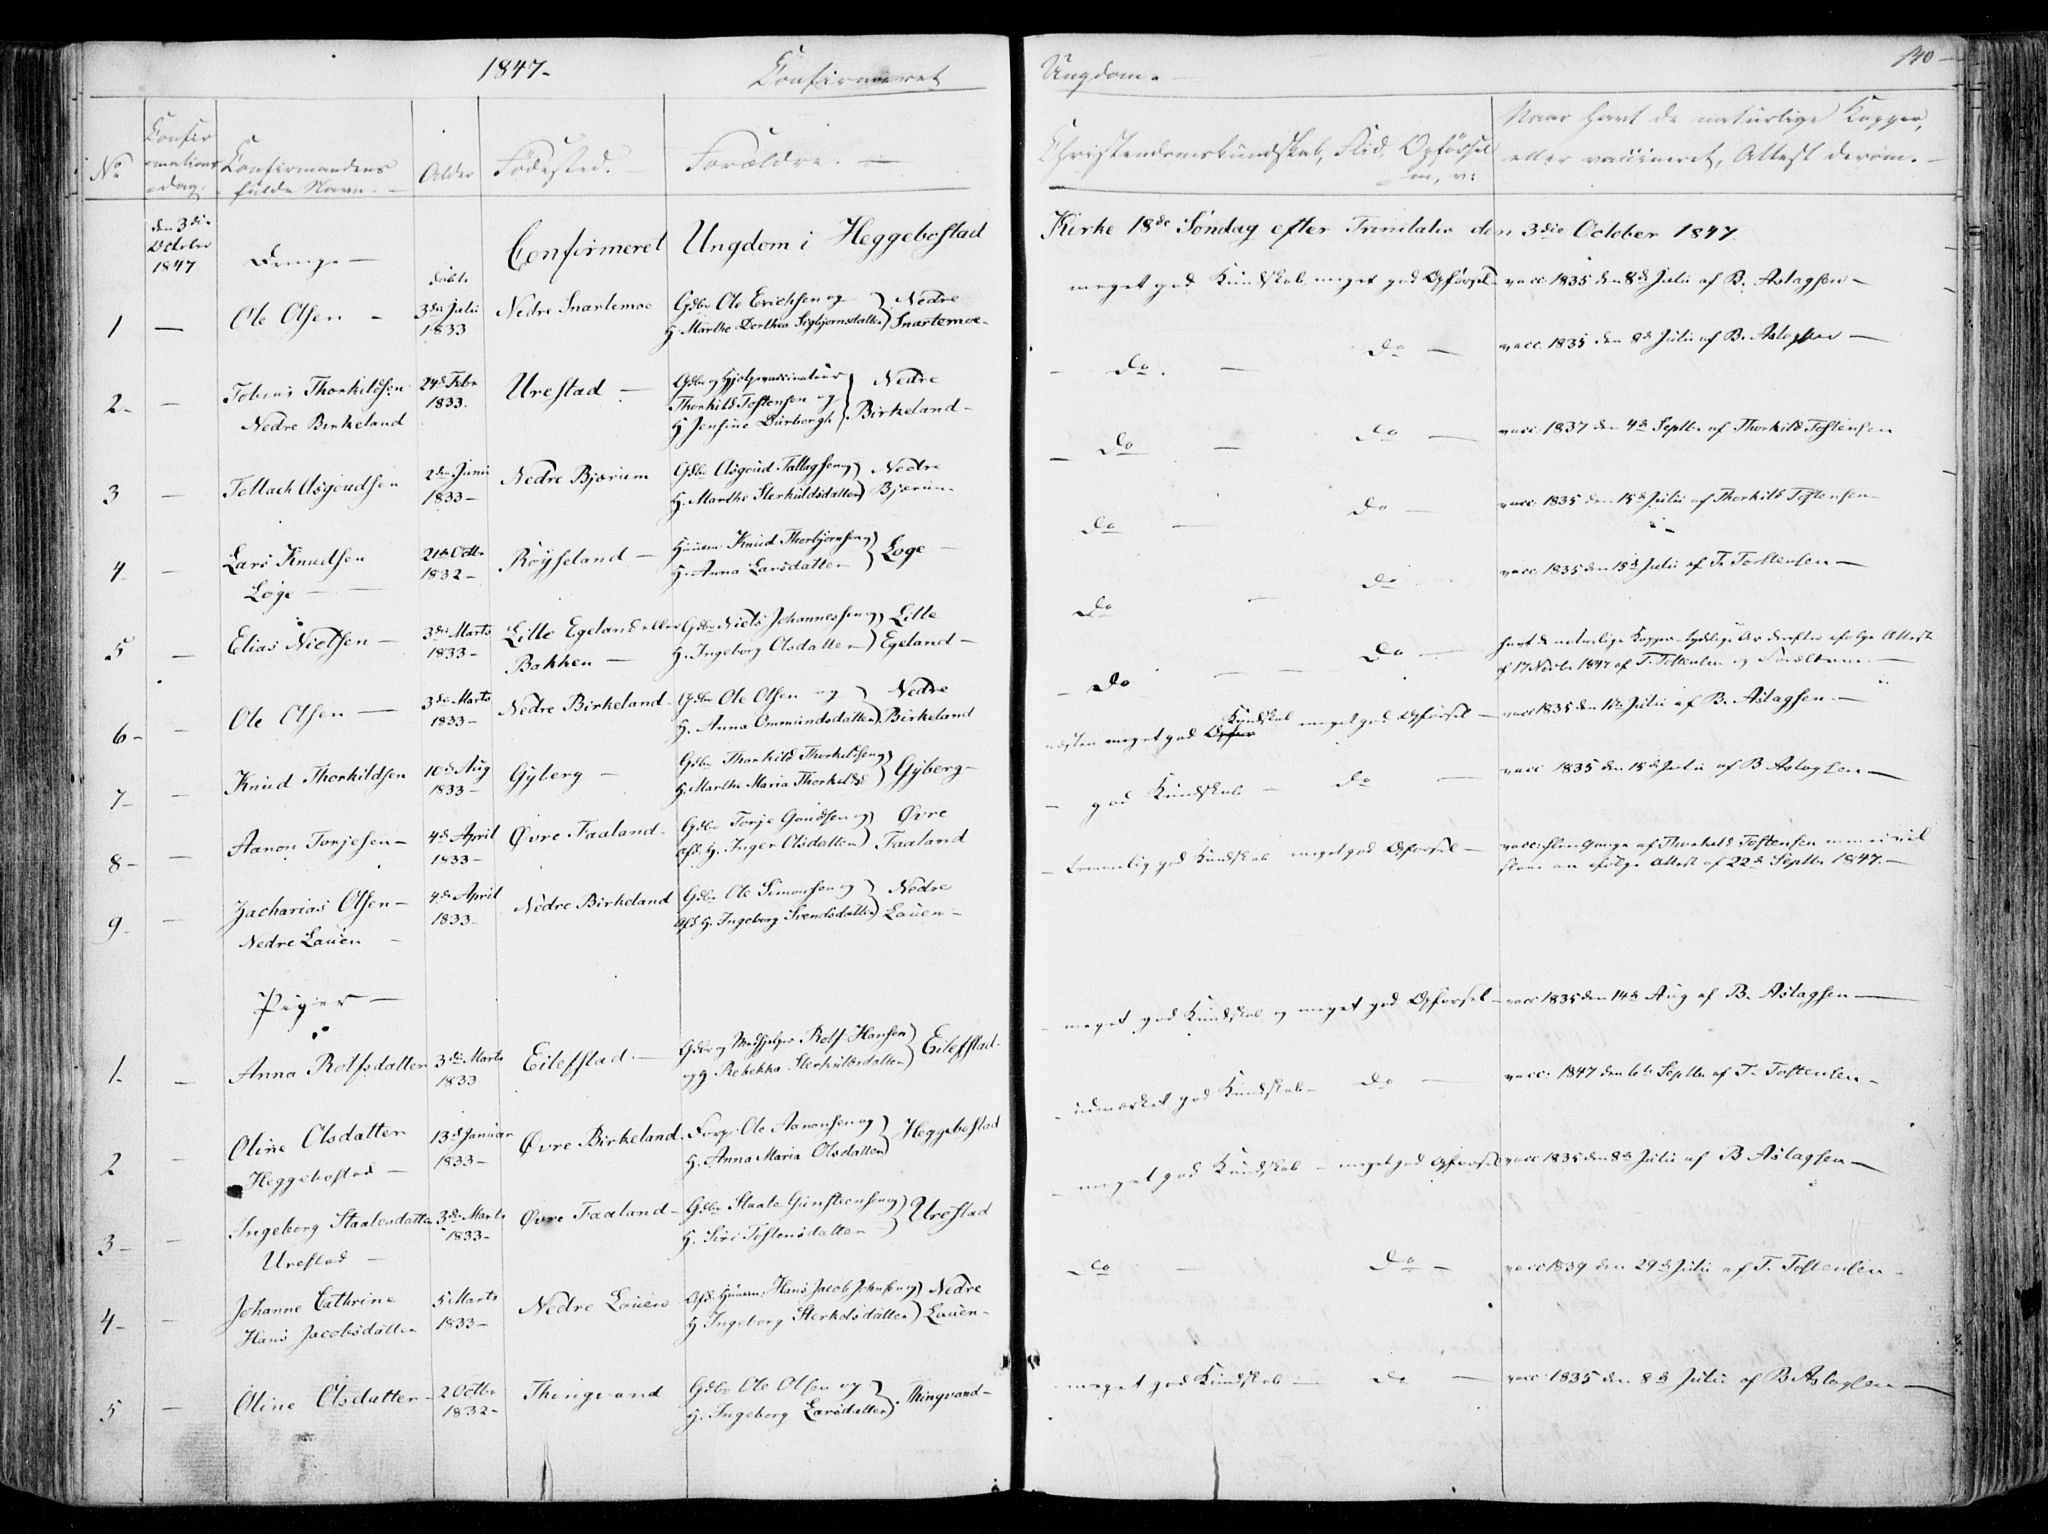 1847-
Confirmeret
Ungdom.
140
No
Confirmations dag.
Confirmandens fulde Navn.
Alder
Fødested.
Forældre.
Christendomskundskab, Flid, Opførsel m. v:
Naar havt de naturlige Kopper, eller vaccineret, Attest derom.
den 3die October 1847
Drenge
døbt
Confirmeret Ungdom i Heggebostad
Kirke 18de Søndag efter Trinitatis den 3die October 1847.
1 — Ole Olsen — 3die Julii 1833 Nedre Snartemoe Gdbr Ole Erichsen og H. Marthe Dorthea Sigbjørnsdatter Nedre Snartemoe-
meget god Kundskab, meget god Opførsel vacc. 1835 den 8de Julii af B. Aslagsen —
2- — Tobias Thorkildsen Nedre Birkeland 24de Febr 1833. Urestad — Gdbr og Hjelpevaccinateur Thorkild Tostensen og H Jensine Dürborgh Nedre Birkeland-
Do. — Do — vacc. 1835 den 8de Julii af B. Aslagsen —
3 — Tollach Asgoudsen 2den Junii 1833- Nedre Bjærum Gdbr Asgoud Tallagsen og H. Marthe Sterkuldsdatter Nedre Bjærum-
Do — Do — vacc. 1837 den 4de Septbr af Thorkild Tostensen
4 — Lars Knudsen Løge — 21de Octbr 1832- Röyseland — Huusm. Knud Thorbjørnsen og H. Anna Larsdatter Løge —
Do — Do — vacc: 1835 den 15de Julii af Thorkild Tostensen
5 — Elias Nielsen — 3die Marts 1833- Lille Egeland eller Bakken — Gdbr Niels Johannessen og H. Ingeborg Olsdatter Lille Egeland-
Do — Do vacc. 1835 den 15de Julii af T. Tostensen —
6- — Ole Olsen — 3die Marts 1833- Nedre Birkeland- Gdbr Ole Olsen og H. Anna Ommundsdatter Nedre Birkeland
Do — Do — havt de naturlige Kopper tydelige Ar derefter ifølge Attest af 17 Novbr 1847 af T. Tostensen og Forældrene. —
7- — Knud Thorkildsen 10de Aug 1833- Gyberg — Gdbr Thorkild Thorkildsen og H. Marthe Maria Thorkildsd Gyberg-
næsten meget god Kundskab meget god Opførsel — vacc 1835 den 15de Julii af B. Aslagsen —
8- — Aanon Tonjesen — 4de April 1833- Øvre Faaland- Gdbr Torje Goudsen og Afd. H. Inger Olsdatter Øvre Faaland
god Kundskab — Do — vacc 1835 den 15de Julii af B Aslagsen —
9- — Zacharias Olsen — Nedre Lauen — 4de April 1833- Nedre Birkeland Gdbr Ole Simonsen og Afd. H. Ingeborg Svendsdatter Nedre Lauen-
temmelig god Kundskab meget god Opførsel — vacc: flere Gange af Thorkild Tostensen men ei vil ifølge Attest af 22de Septbr 1847. —
Piger —
1. — Anna Rolfsdatter 3die Marts 1833 Eilefstad. — Gdbr og Medhjelper Rolf Hansen og H Rebekka Sterkuldsdatter Eilefstad.
meget god Kundskab og meget god Opførsel — vacc 1835 den 14de Aug af B. Aslagsen —
2 — Oline Olsdatter Heggebostad — 13de Januar 1833- Øvre Birkeland. Forp: Ole Aanonsen og H. Anna Maria Olsdatter Heggebostad
udmærket god Kundskab — Do — vacc: 1847 den 6te Septbr af T. Tostensen-
3- — Ingeborg Staalesdatter Urestad — 3die Marts 1833- Øvre Faaland- Gdbr Staale Gunsteensen og H. Siri Tostensdatter Urestad
meget god Kundskab — meget god Opførsel vacc 1835 den 8de Julii af B Aslagsen —
4- — Johanne Cathrine Hans Jacobsdatter 5 Marts 1833- Nedre Lauen Afd. Huusm: Hans Jacob Johnsen og H Ingeborg Sterkolsdatter Nedre Lauen-
Do — Do — vacc 1839 den 29de Julii af T. Tostensen-
5 — Oline Olsdatter- 2 Octbr 1832- Thingvand Gdbr Ole Olsen og H. Ingeborg Larsdatter Thingvand-
meget god Kundskab — do — vacc: 1835 den 8de Julii af B Aslagsen —